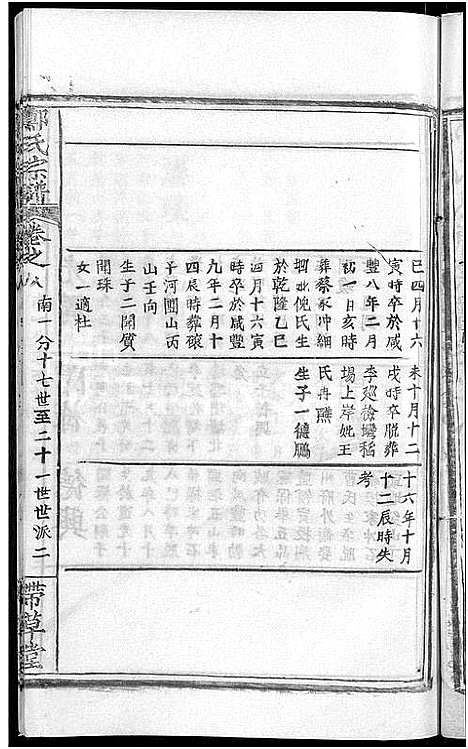 巳四月十六
寅時卒於咸
豐八年二月
初一日亥時
葬蔡家冲細
坳妣倪氏生
於乾隆乙巳
四月十六寅
時卒於咸豐
九年二月十
四辰時葬磙
子河團山丙
山壬向
生子二開質
開珠
女一適杜
未十月十二
戌時卒脫葬
李姓檢塆稻
場上岸妣王
氏冉醮
生子一德鵬
十六年十月
十二辰時失
考
鄭氏宗譜
卷之八
南一分十七世至二十一世世派二
帶草堂